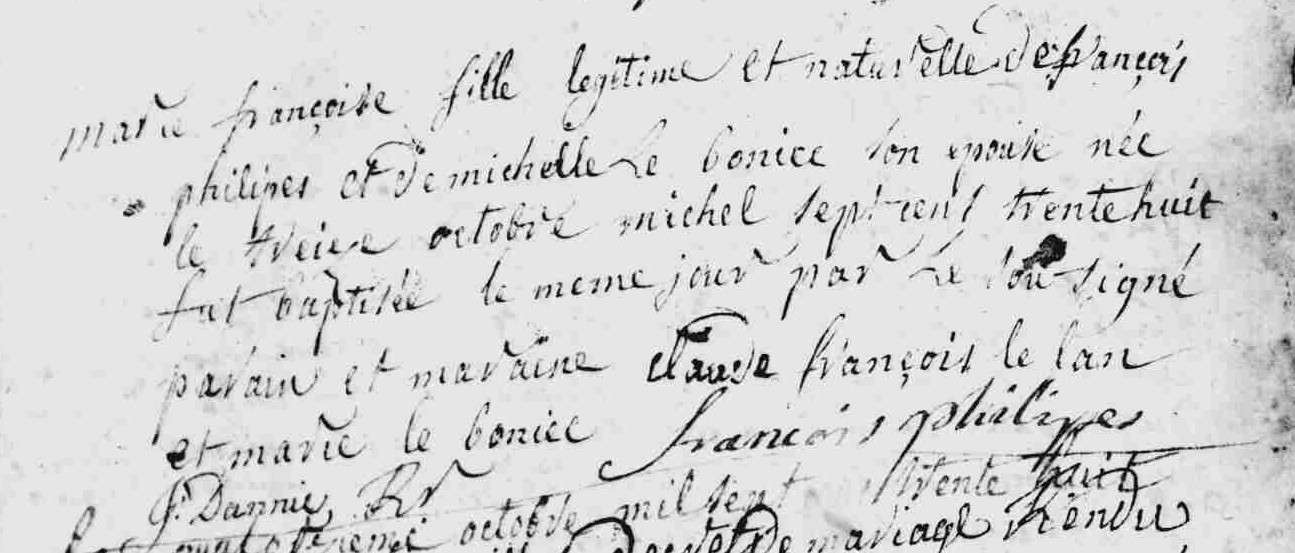 marie françoise fille legitime et naturelle de françois
philipes et de michelle Le bonice son epouse née
le treize octobre michel sept cens trente huit
fut baptisée le meme jour par Le sousigné
parain et maraine claude françois le lan
et marie le bonice françois philipes
octobre mil sent trente huit
de mariage Rendu